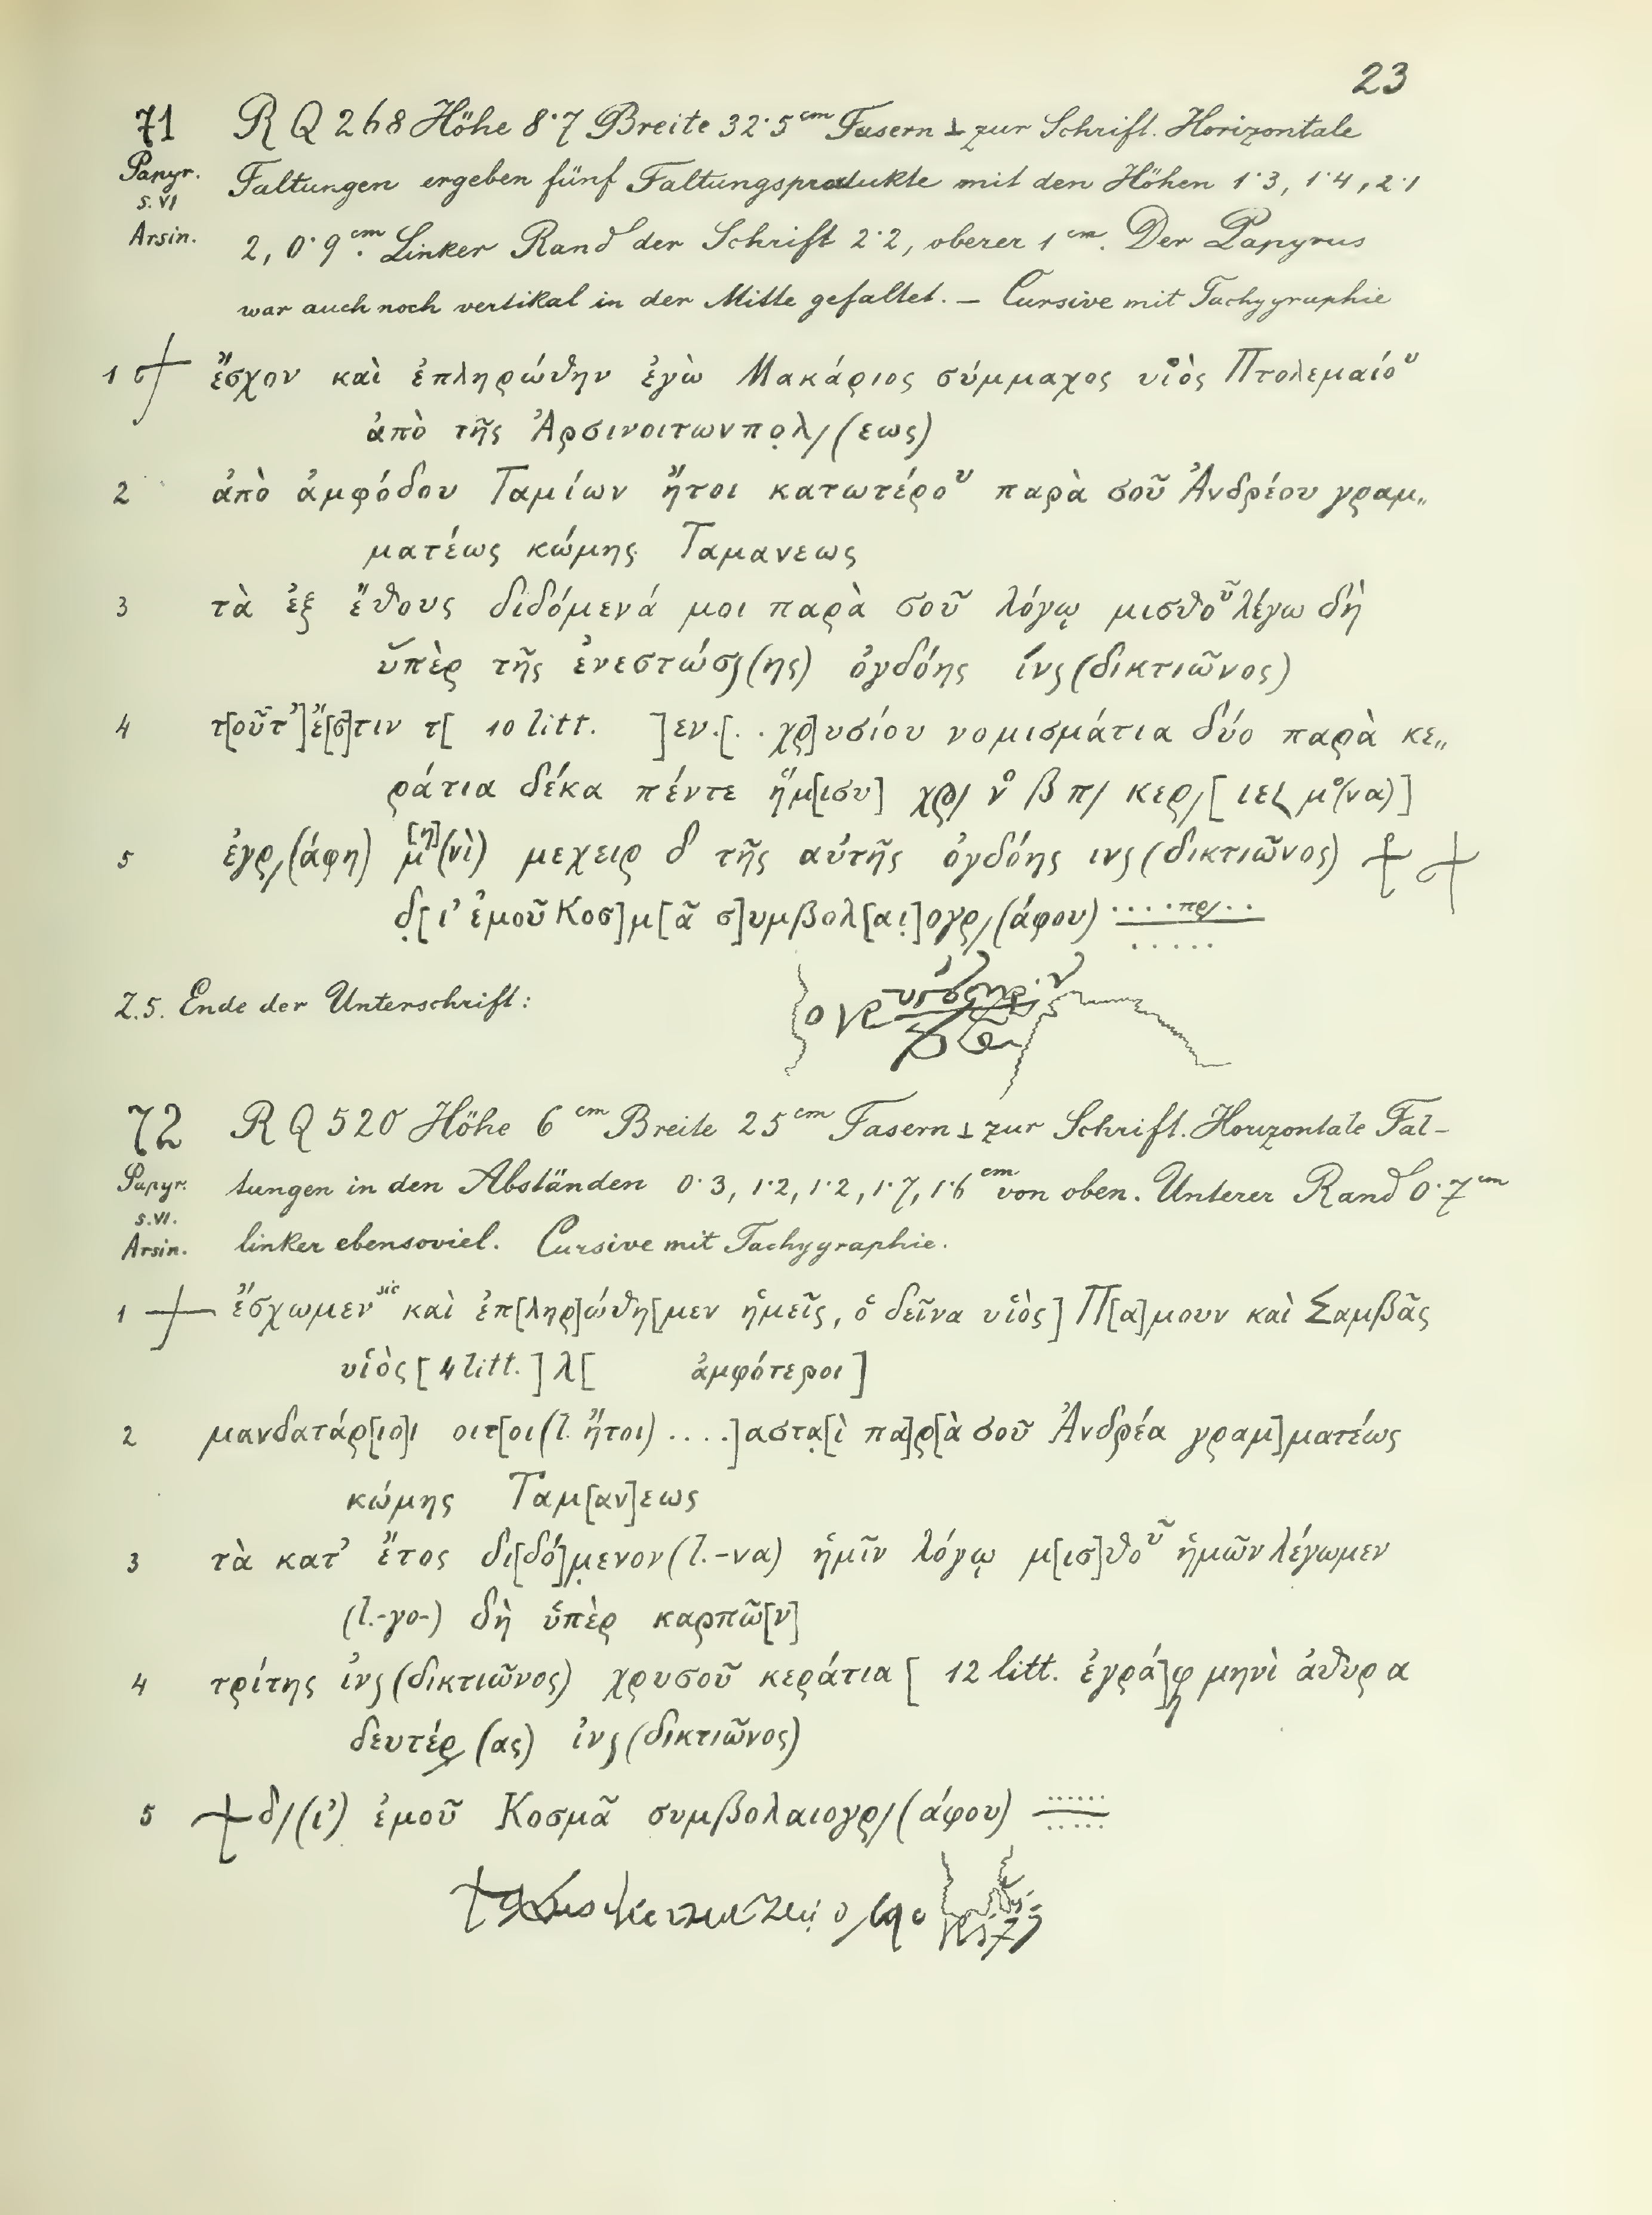 23
71 R Q 268 Höhe 8·7 Breite 32·5 cm Fasern ⊥ zur Schrift. Horizontale
Papyr. s. VI Faltungen ergeben fünf Faltungsprodukte mit den Höhen 1·3, 1·4, 2·1
Arsin. 2, 0·9 cm. Linker Rand der Schrift 2·2, oberer 1 cm. Der Papyrus
war auch noch vertikal in der Mitte gefaltet. — Cursive mit Tachygraphie
1 ⳨ ἔσχον καὶ ἐπληρώθην ἐγὼ Μακάριος σύμμαχος υἱὸς Πτολεμαίου
ἀπὸ τῆς Ἀρσινοιτωνπο̣λ/(εως)
2 ἀπὸ ἀμφόδου Ταμίων ἤτοι κατωτέρου παρὰ σοῦ Ἀνδρέου γραμ„
ματέως κώμης Ταμανεως
3 τὰ ἐξ ἔθους διδόμενά μοι παρὰ σοῦ λόγῳ μισθοῦ λέγω δὴ
ὑπὲρ τῆς ἐνεστώσʃ(ης) ὀγδόης ἰνʃ(δικτιῶνος)
4 τ[οῦτ’]ἔ[σ]τιν τ[ 10 litt. ]εν.[. . χρ]υσίου νομισμάτια δύο παρὰ κε„
ράτια δέκα πέντε ἥμ[ισυ] χρ/ νο β π/ κερ/[ ιε𐅵 μο(να)]
5 ἐγρ/(άφη) μ[η](νὶ) μεχειρ δ τῆς αὐτῆς ὀγδόης ινʃ(δικτιῶνος) ⳨ ⳨
δ̣[ι’ ἐμοῦ Κοσ]μ[ᾶ σ]υμβολ[αι̣]ογρ/(άφου) ....πρ/..
.....
Z.5. Ende der Unterschrift:
72 R Q 520 Höhe 6 cm Breite 25 cm Fasern ⊥ zur Schrift. Horizontale Fal-
Papyr. s. VI. tungen in den Abständen 0·3, 1·2, 1·2, 1·7, 1·6 cm von oben. Unterer Rand 0·7 cm
Arsin. linker ebensoviel. Cursive mit Tachygraphie.
1 ⳨ ἔσχωμεν sic καὶ ἐπ[ληρ]ώθη[μεν ἡμεῖς, ὁ δεῖνα υἱὸς] Π[α]μουν καὶ Σαμβᾶς
υἱὸς [ 4 litt. ] λ[ ἀμφότεροι ]
2 μανδατάρ[ιο]ι οιτ[οι (l. ἤτοι) ....]αστα̣[ὶ πα]ρ[ὰ σοῦ Ἀνδρέα γραμ]ματέως
κώμης Ταμ[αν]εως
3 τὰ κατ’ ἔτος δι[δό]μ̣ενον (l. -να) ἡμῖν λόγῳ μ[ισ]θοῦ ἡμῶν λέγωμεν
(l. -γο-) δὴ ὑπὲρ καρπῶ[ν]
4 τρίτης ἰνʃ(δικτιῶνος) χρυσοῦ κεράτια [ 12 litt. ἐγρά]φη μηνὶ ἁθυρ α
δευτέρ/(ας) ἰνʃ(δικτιῶνος)
5 ⳨ δ/(ι’) ἐμοῦ Κοσμᾶ συμβολαιογρ/(άφου)